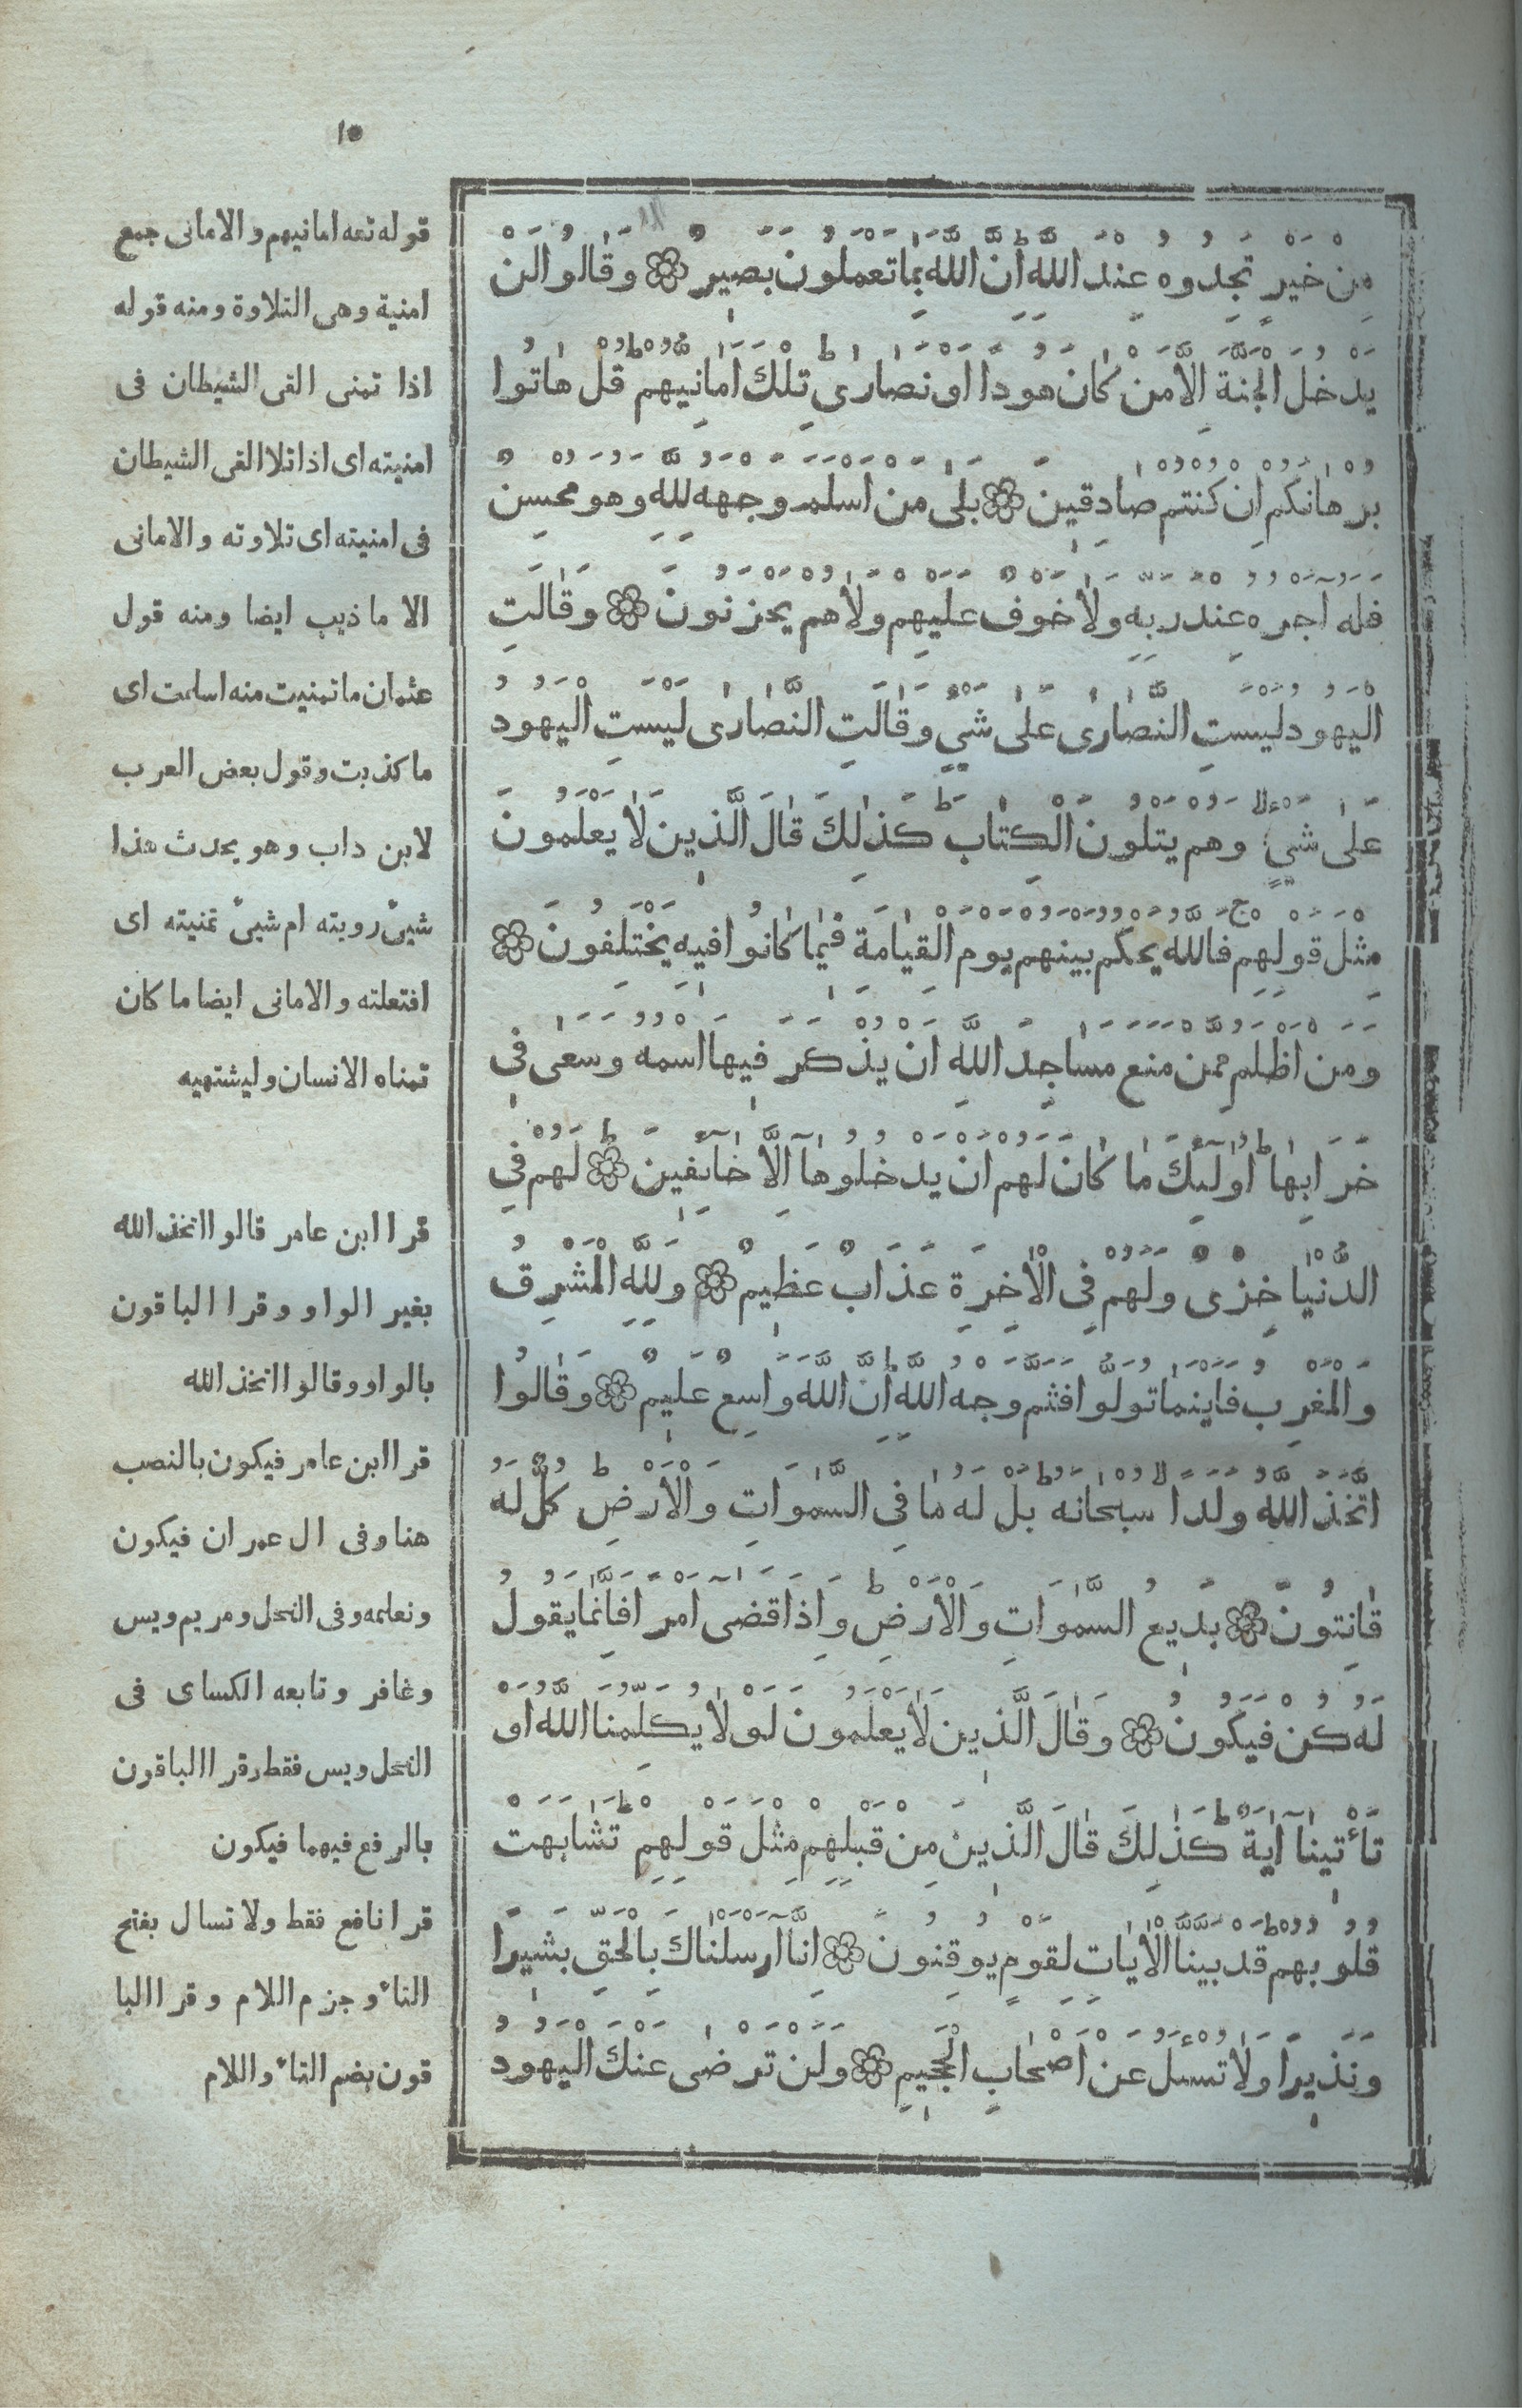 ١٥
مِن خَيْرٍ تَجِدُوهُ عِنْدَ اللّٰهِ اِنَّ اللّٰهَ بِمَا تَعْمَلُونَ بَصِيرٌ ۞ وَقَالُوا لَنْ
يَدْخُلَ الْجَنَّةَ اِلَّا مَنْ كَانَ هُودًا اَوْ نَصَارٰى ط تِلْكَ اَمَانِيُّهُمْ ط قُلْ هَاتُوا
بُرْهَانَكُمْ اِنْ كُنْتُمْ صَادِقِينَ ۞ بَلٰى مَنْ اَسْلَمَ وَجْهَهُ لِلّٰهِ وَهُوَ مُحْسِنٌ
فَلَهُ اَجْرُهُ عِنْدَ رَبِّهِ وَلَا خَوْفٌ عَلَيْهِمْ وَلَا هُمْ يَحْزَنُونَ ۞ وَقَالَتِ
الْيَهُودُ لَيْسَتِ النَّصَارٰى عَلٰى شَيْءٍ وَقَالَتِ النَّصَارٰى لَيْسَتِ الْيَهُودُ
عَلٰى شَيْءٍ لا وَهُمْ يَتْلُونَ الْكِتَابَ ط كَذٰلِكَ قَالَ الَّذِينَ لَا يَعْلَمُونَ
مِثْلَ قَوْلِهِمْ ج فَاللّٰهُ يَحْكُمُ بَيْنَهُمْ يَوْمَ الْقِيَامَةِ فِيمَا كَانُوا فِيهِ يَخْتَلِفُونَ ۞
وَمَنْ اَظْلَمُ مِمَّنْ مَنَعَ مَسَاجِدَ اللّٰهِ اَنْ يُذْكَرَ فِيهَا اسْمُهُ وَسَعٰى فِى
خَرَابِهَا ط اُولٰٓئِكَ مَا كَانَ لَهُمْ اَنْ يَدْخُلُوهَآ اِلَّا خَآئِفِينَ ط ۞ لَهُمْ فِى
الدُّنْيَا خِزْىٌ وَلَهُمْ فِى الْاٰخِرَةِ عَذَابٌ عَظِيمٌ ۞ وَلِلّٰهِ الْمَشْرِقُ
وَالْمَغْرِبُ فَاَيْنَمَا تُوَلُّوا فَثَمَّ وَجْهُ اللّٰهِ ط اِنَّ اللّٰهَ وَاسِعٌ عَلِيمٌ ۞ وَقَالُوا
اتَّخَذَ اللّٰهُ وَلَدًا لا سُبْحَانَهُ ط بَلْ لَهُ مَا فِى السَّمٰوَاتِ وَالْاَرْضِ ط كُلٌّ لَهُ
قَانِتُونَ ۞ بَدِيعُ السَّمٰوَاتِ وَالْاَرْضِ ط وَاِذَا قَضٰىٓ اَمْرًا فَاِنَّمَا يَقُولُ
لَهُ كُنْ فَيَكُونُ ۞ وَقَالَ الَّذِينَ لَا يَعْلَمُونَ لَوْلَا يُكَلِّمُنَا اللّٰهُ اَوْ
تَأْتِينَآ اٰيَةٌ ط كَذٰلِكَ قَالَ الَّذِينَ مِنْ قَبْلِهِمْ مِثْلَ قَوْلِهِمْ ط تَشَابَهَتْ
قُلُوبُهُمْ ط قَدْ بَيَّنَّا الْاٰيَاتِ لِقَوْمٍ يُوقِنُونَ ۞ اِنَّآ اَرْسَلْنَاكَ بِالْحَقِّ بَشِيرًا
وَنَذِيرًا وَلَا تُسْئَلُ عَنْ اَصْحَابِ الْجَحِيمِ ۞ وَلَنْ تَرْضٰى عَنْكَ الْيَهُودُ
قوله تعه امانيهم والامانى جمع
امنية وهى التلاوة ومنه قوله
اذا تمنى القى الشيطان فى
امنيته اى اذا تلا القى الشيطان
فى امنيته اى تلاوته والامانى
الا ماذيب ايضا ومنه قول
عثمان ما تمنيت منه اسلمت اى
ما كذبت وقول بعض العرب
لابن داب وهو يحدث هذا
شىء رويته ام شىء تمنيته اى
افتعلته والامانى ايضا ما كان
تمناه الانسان وليشتهيه
قرا ابن عامر قالوا اتخذ الله
بغير الواو وقرا الباقون
بالواو وقالوا اتخذ الله
قرا ابن عامر فيكون بالنصب
هنا وفى ال عمران فيكون
ونعلمه وفى النحل ومريم ويس
وغافر وتابعه الكساى فى
النحل ويس فقط وقرا الباقون
بالرفع فيهما فيكون
قرا نافع فقط ولا تسال بفتح
التاء وجزم اللام وقرا البا
قون بضم التاء واللام